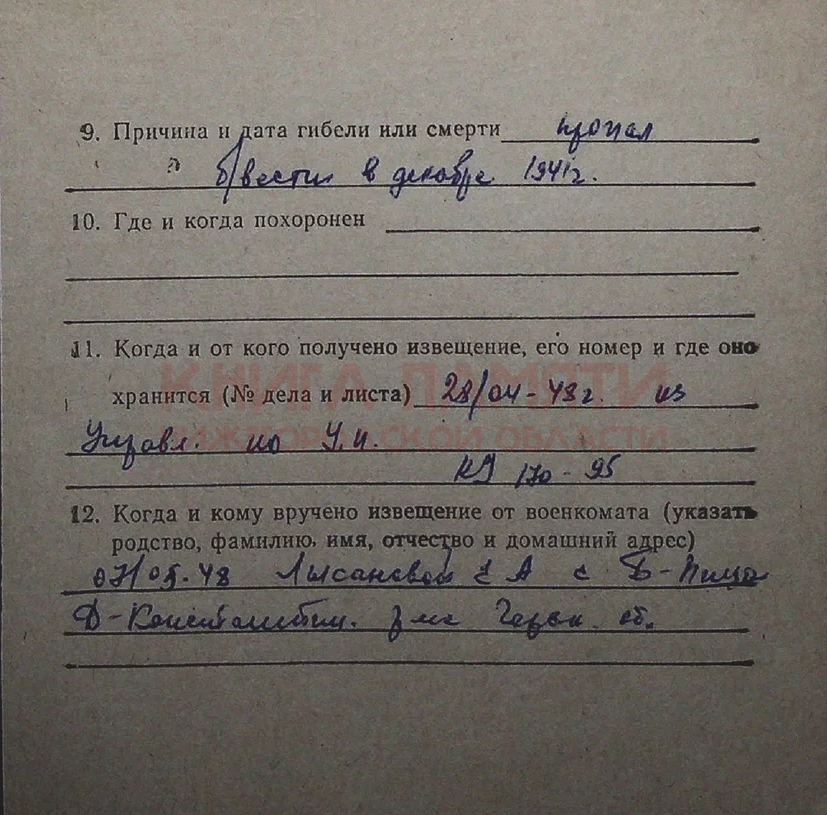 9. Причина и дата гибели или смерти пропал
б/вести в декабре 1941г.
10. Где и когда похоронен
11. Когда и от кого получено извещение, его номер и где оно
хранится (№ дела и листа) 28/04-48г. из
КНИГА ПАМЯТИ
Управл. по У.п.
НИЖЕГОРОДСКОЙ ОБЛАСТИ
170-95
12. Когда и кому вручено извещение от военкомата (указать
родство, фамилию, имя, отчество и домашний адрес)
07/05-48 Лысановой Е А с Б-Пица
Д-Константин. р-на Горьк. об.